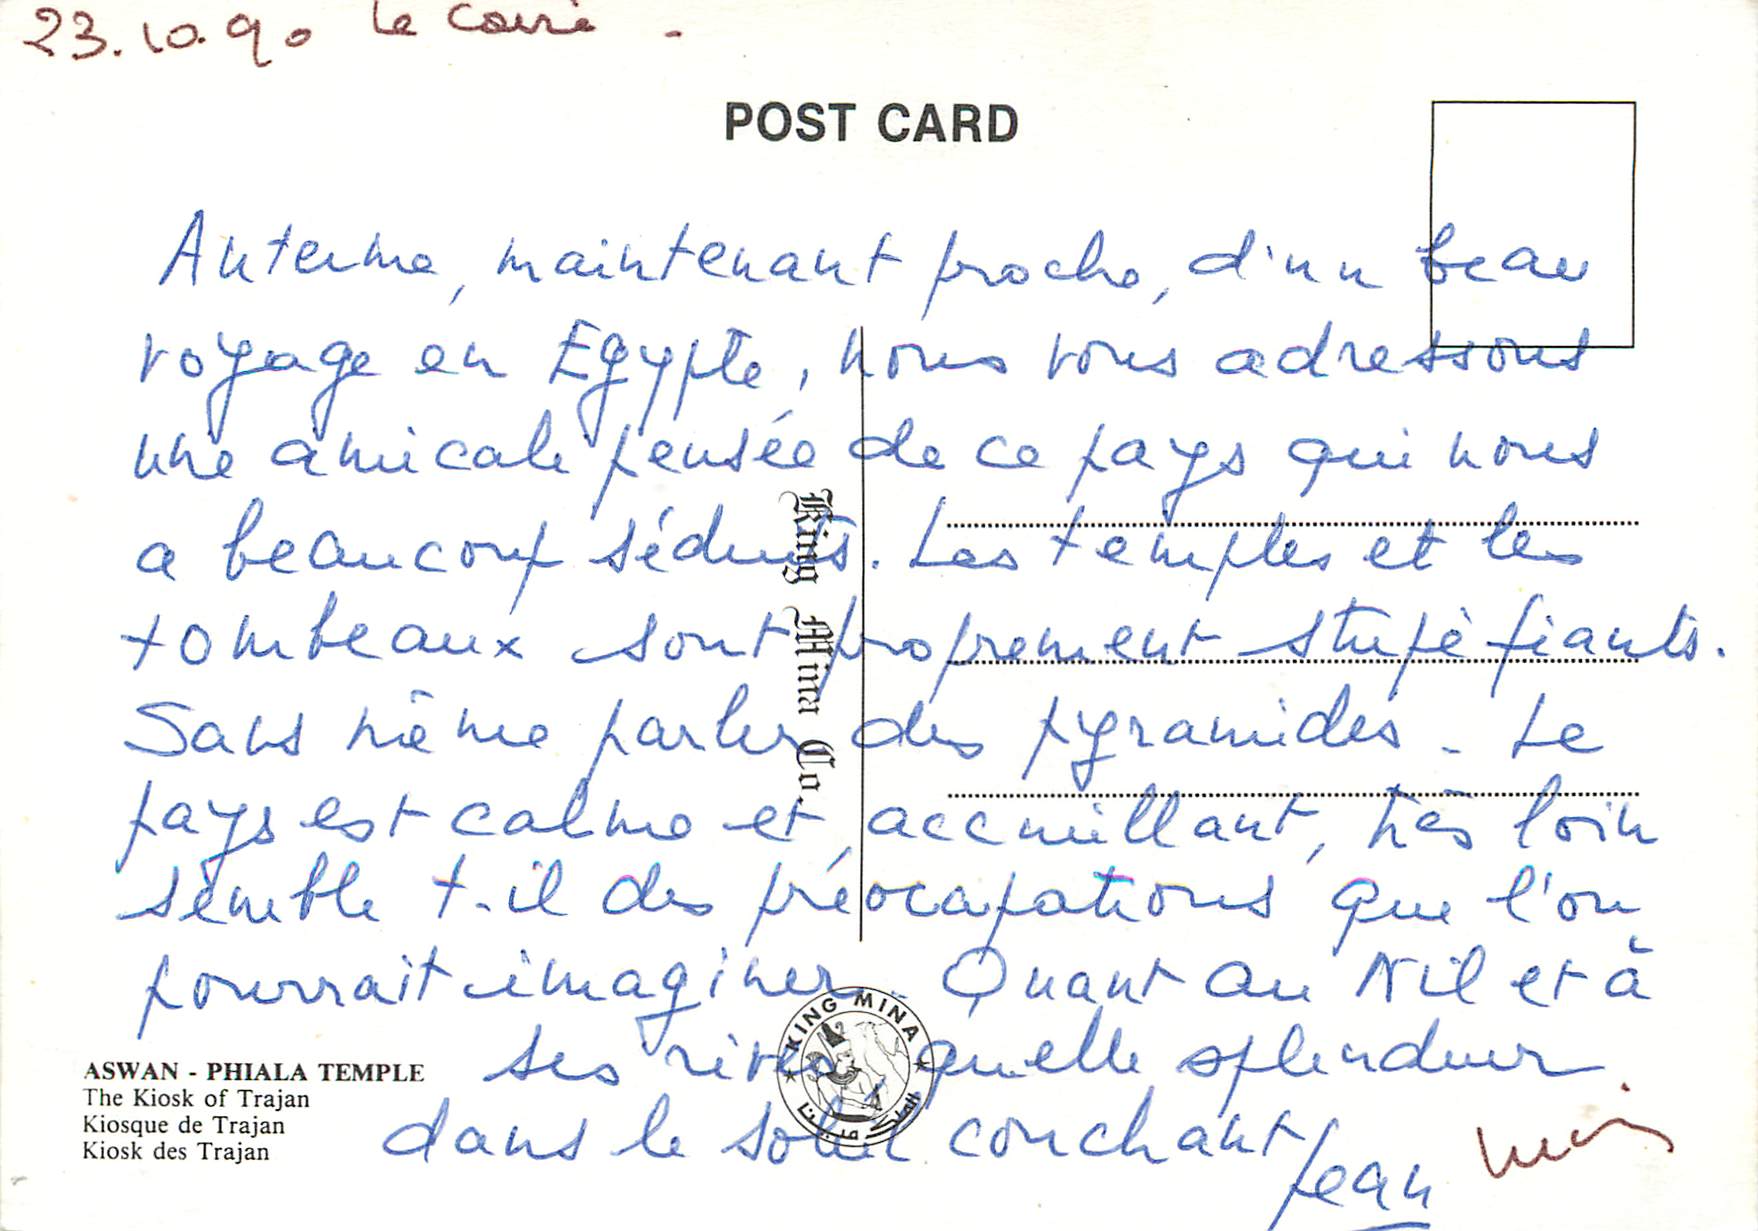 23.10.90 Le Caire.
POST CARD
Au terme, maintenant proche, d'un beau
voyage en Egypte, nous vous adressons
une amicale pensée de ce pays qui nous
a beaucoup séduits. Les temples et les
tombeaux sont proprement stupéfiants.
Sans même parler des pyramides. Le
pays est calme et accueillant, très loin
semble t-il des préocupations que l'on
pourrait imaginer. Quant au Nil et à
ses rives, quelle splendeur
dans le soleil couchant
Jean
King Mina Co.
KING MINA
الملك مينا
ASWAN - PHIALA TEMPLE
The Kiosk of Trajan
Kiosque de Trajan
Kiosk des Trajan